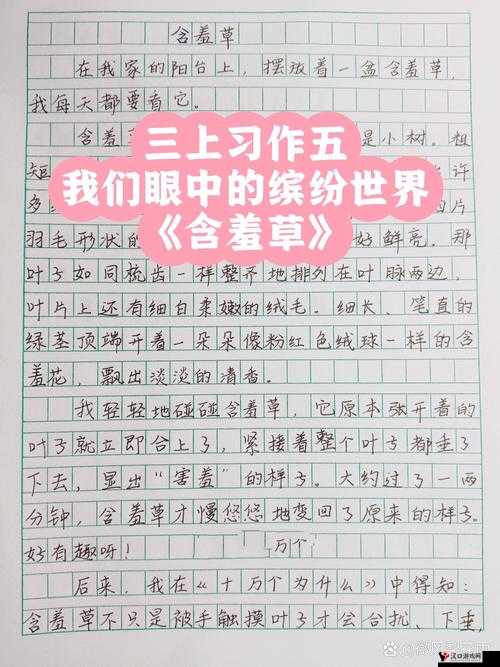 含羞草
在我家的阳台上，摆放着一盆含羞草，
我每天都要看它。
含羞 是小树。粗
三上习作五
短 许
我们眼中的缤纷世界
多 片
《含羞草》
羽毛形状的 好鲜亮。那
叶子如同梳齿一样整齐地排列在叶脉两边，
叶片上还有细白柔嫩的绒毛。细长、笔直的
绿茎顶端开着一朵朵像粉红色绒球一样的含
羞花，飘出淡淡的清香。
我轻轻地碰碰含羞草，它原本张开着的
叶子就立即合上了，紧接着整个叶子都垂了
下去，显出“害羞”的样子。大约过了一两
分钟，含羞草才慢悠悠地变回了原来的样子。
好有趣呀！ 万个
后来，我在《十万个为什么》中得知：
含羞草不只是被手触摸叶子才会合拢、下垂，
汉口游戏网